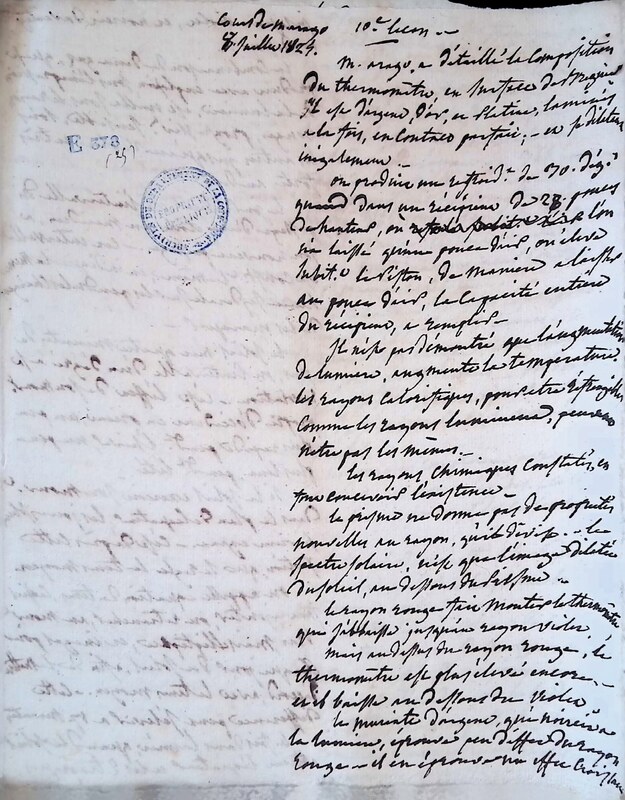 Cours de m. arago
8. juillet 1824.
10e. leçon -
E 378
(25)
m. arago, a détaillé la Composition
du thermomètre, en
Il est d'argent, d'or, en platine, laminés
a la fois, en Contact parfait; - en se dilatant
inégalement -
on produit un refroid.t de 30. dég.s
quand dans un récipient de 28. pouces
de hauteur, où l'on
n'a laissé qu'un pouce d'air, on élève
subit.t le piston, de manière a laisser
au pouce d'air, la Capacité entière
du récipient, a remplir -
Il n'est pas démontré que l'augmentation
de lumière, augmente la température
les rayons Calorifiques, pour etre réfrangibles
Comme les rayons lumineux, peuvent
n'être pas les mêmes. -
les rayons Chimiques Constatés, en
font concevoir l'existence -
le prisme ne donne pas de propriétés
nouvelles au rayon, qu'il divise. - le
spectre solaire, n'est que l'image dilatée
du soleil, au dessous du prisme -
le rayon rouge fait monter le thermomètre
qui s'abaisse jusqu'au rayon violet
mais au dessus du rayon rouge, le
thermomètre est plus élevé encore. -
et il baisse au dessous du violet
le muriate d'argent, qui noircit a
la lumière, éprouve peu d'effet du rayon
rouge - il en éprouve un effet Croissant